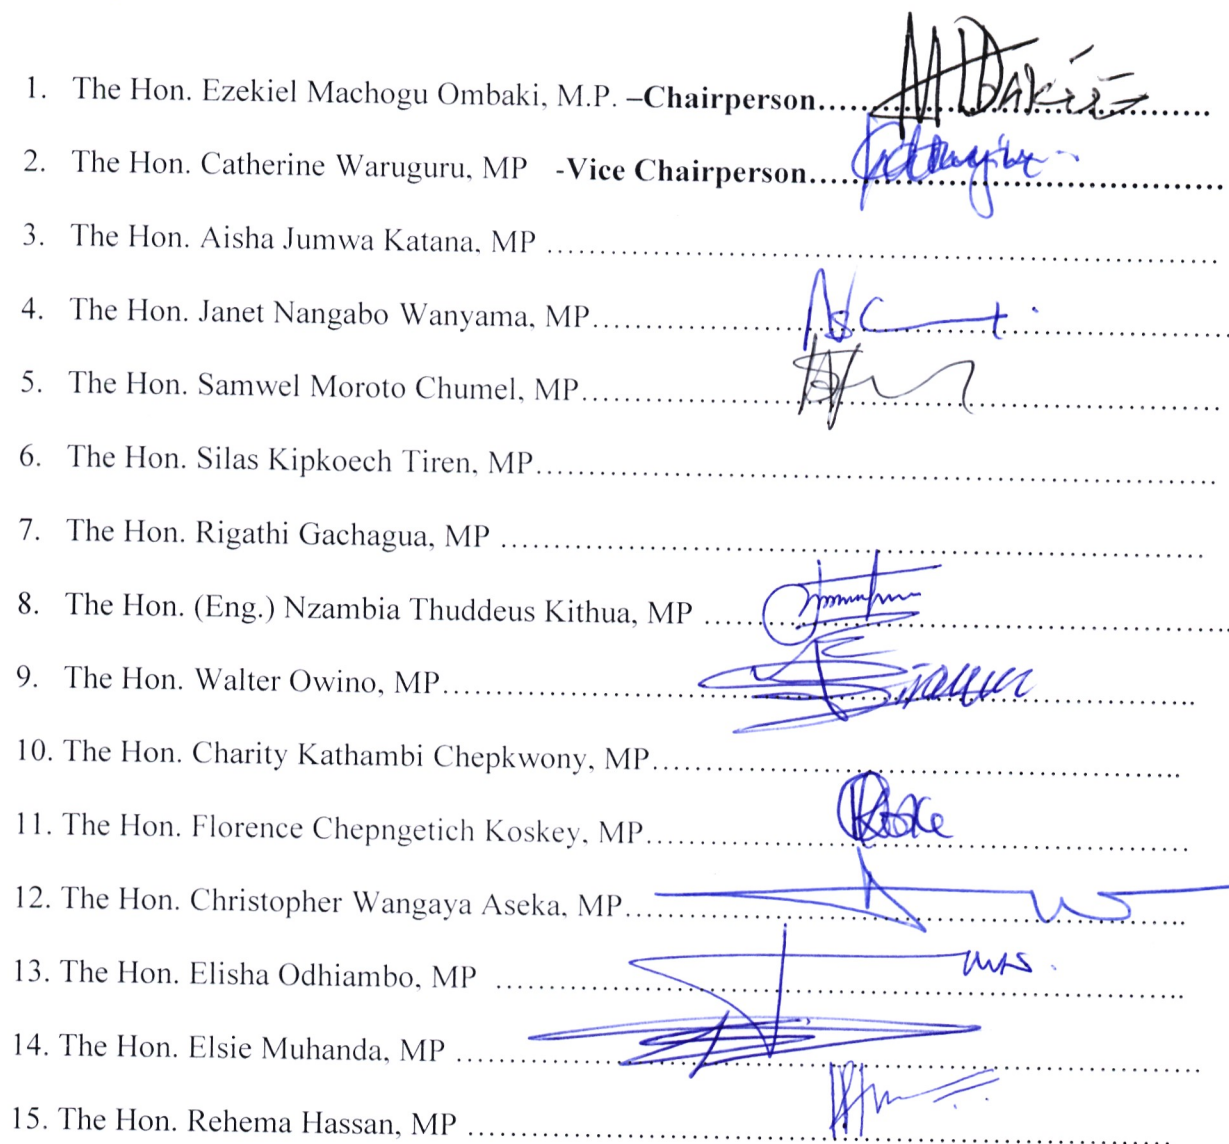 1. The Hon. Ezekiel Machogu Ombaki, M.P. –Chairperson..............................
2. The Hon. Catherine Waruguru, MP -Vice Chairperson..............................
3. The Hon. Aisha Jumwa Katana, MP ..............................
4. The Hon. Janet Nangabo Wanyama, MP..............................
5. The Hon. Samwel Moroto Chumel, MP..............................
6. The Hon. Silas Kipkoech Tiren, MP..............................
7. The Hon. Rigathi Gachagua, MP ..............................
8. The Hon. (Eng.) Nzambia Thuddeus Kithua, MP ..............................
9. The Hon. Walter Owino, MP..............................
10. The Hon. Charity Kathambi Chepkwony, MP..............................
11. The Hon. Florence Chepngetich Koskey, MP..............................
12. The Hon. Christopher Wangaya Aseka, MP..............................
13. The Hon. Elisha Odhiambo, MP ..............................
14. The Hon. Elsie Muhanda, MP ..............................
15. The Hon. Rehema Hassan, MP ..............................